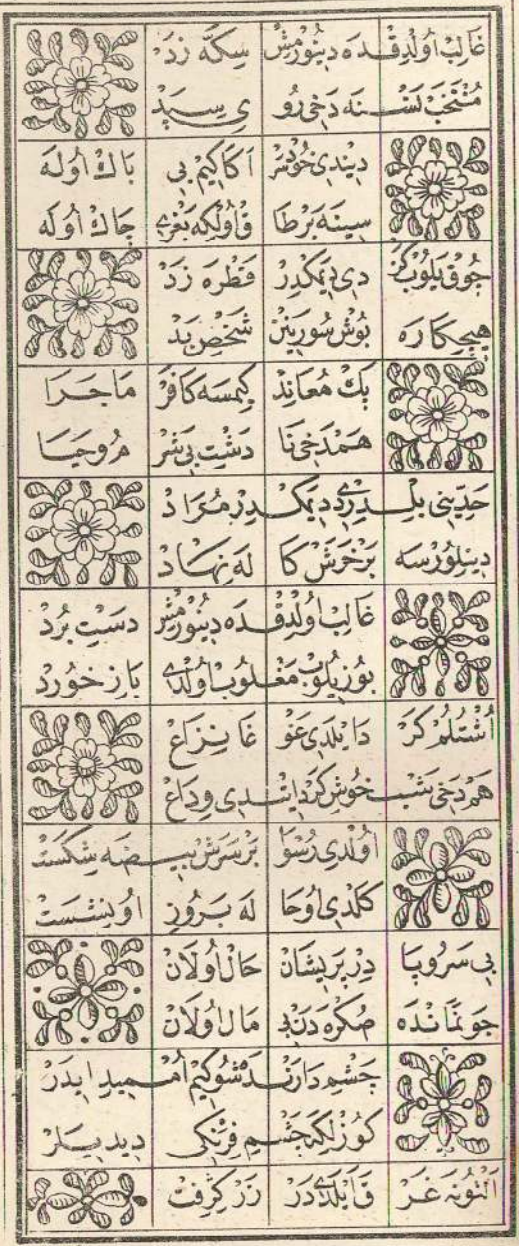 غَالِبْ اُولْدِقْدَه دِينُورْمِشْ سِكَّه زَدْ
مُنْتَخَبْ نَسْنَه دَخِي رُوىِ سِپَيدْ
دِينْدِى خُودْسَرْ آكَا كِيمْ بِى بَاكْ اُولَه
سِينَه بَرْطَاقْ اُولْكِه بَغْرِى چَاكْ اُولَه
چُوقْ يَلُوبْ كَزْدِى دِيمَكْدِرْ قَطْرَه زَدْ
هِيچكَارَه بُوشْ سُورِينَنْ شَخْصِ بَدْ
پَكْ مُعَانِدْ كِيمْسَه كَافَرْ مَاجَرَا
هَمْ دَخِى نَادَشْتِ بِى شَرْمُ وحَيَا
حَدِّينِى بِلْدِرْدِى دِيمَكْدِرْ مُرَادْ
دِينِلُورْسَه بَرْخَرَشْ كَالَه نِهَادْ
غَالِبْ اُولْدِقْدَه دِينُورْمِشْ دَسْتِ بُرْدْ
بُوزِيلُوبْ مَغْلُوبْ اُولْدِى بَازْ خُورْدْ
اُشْتُلُمْ كَرْدَ ايلَدِى غَوْغَا نِزَاعْ
هَمْ دَخِى شَبْ خُوشْ كَرْدْ ايتْدِى وِدَاعْ
اُولْدِى رُسْوَا بَرْسَرَشْ بَيْضَه شِكَسْتْ
كَلْدِى اُوحَالَه بَرُوزِ اُو نِشَسْتْ
بِى سَرُوپَا دِرْ پَرِيشَانْ حَالْ اُولَانْ
جَو نَمَانْدَه صُكْرَه دَنْ بِى مَالْ اُولَانْ
چَشْمِ دَارَنْدْ شُوكِيمْ اُمِّيدْ ايدَرْ
كُوزْلِكَه چَشْمِ فِرَنْكِى دِيدِيلَرْ
اَلْتُونَه غَرْقْ ايلَدِى دَرْ زَرْ كِرِفْتْ